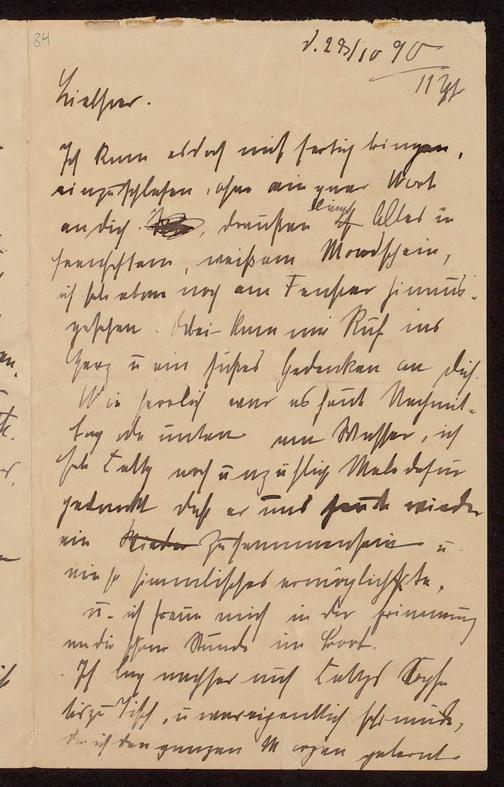 84
d. 29/10 90
11 Uhr
Liebster.
Ich kann es doch nicht fertig bringen,
einzuschlafen, ohne ein paar Wort
an dich, draußen liegt Alles in
feenhftem, weißem Mondschein,
ich hab eben noch am Fenster hinaus-
gesehen. Dabei kam mir Ruh ins
Herz u ein süßes Gedenken an dich.
Wie herrlich war es heut Nachmit-
tag da unten am Wasser, ich
hab Catty noch unzählig Male dafür
gedankt daß er uns heute wieder
ein Wieder Zusammensein u
ein so himmlisches ermöglichte,
u. ich freue mich in der Erinnerung
an die schöne Stunde im Boot.
Ich lag nachher auf Cattys Sopha
bis zu Tisch, u war eigentlich sehr müde,
da ich den ganzen Morgen gelernt